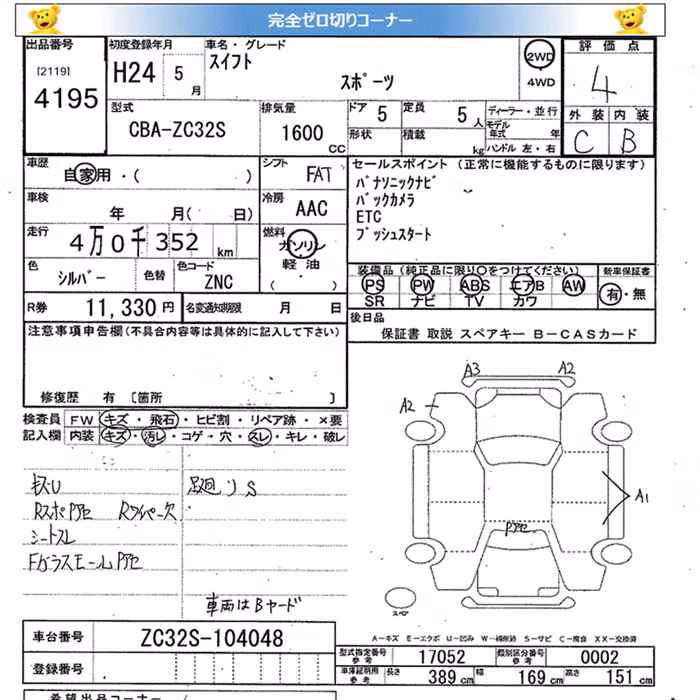 完全ゼロ切りコーナー
出品番号
[2119]
4195
初度登録年月
H24 5月
車名・グレード
スイフト
スポーツ
2WD
4WD
評価点
4
外装 内装
C B
型式
CBA-ZC32S
排気量
1600 CC
ドア 5
定員 5人
形状
積載 kg
ディーラー・並行
モデル年式 年
ハンドル 左・右
車歴
自家用・( )
シフト
FAT
車検
年 月( 日)
冷房
AAC
走行
4万0千352 km
燃料
ガソリン
軽油
( )
セールスポイント (正常に機能するものに限ります)
パナソニックナビ
バックカメラ
ETC
プッシュスタート
色
シルバー
色替
色コード
ZNC
装備品(純正品に限り○をつけてください)
PS PW ABS エアB AW
SR ナビ TV カワ
新車保証書
有・無
R券 11,330 円
名変通知期限 月 日
後日品
保証書 取説 スペアキー B-CASカード
注意事項申告欄(不具合内容等は具体的に記入して下さい)
修復歴 有 [箇所 ]
検査員 FW キズ・飛石・ヒビ割・リペア跡・×要
記入欄 内装 キズ・汚レ・コゲ・穴・スレ・キレ・破レ
A3 A2
A2
A1
Pアセ
キズU
足廻りS
RスポPアセ Rワイパー欠
シートスレ
FガラスモールPアセ
車両はBヤード
スペア
A-キズ E-エクボ U-凹み W-補修跡 S-サビ C-腐食 XX-交換済
車台番号 ZC32S-104048
登録番号
型式指定番号 参考 17052
類別区分番号 参考 0002
車庫証明用 参考 長さ 389 cm 幅 169 cm 高さ 151 cm
希望出品コーナー